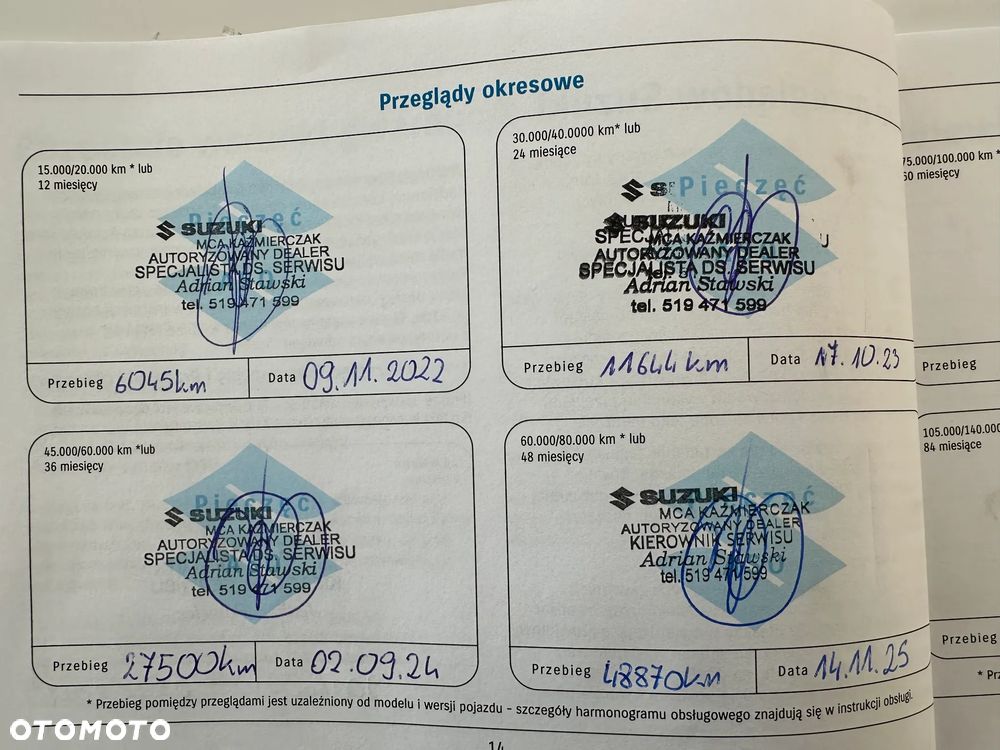 Przeglądy okresowe
15.000/20.000 km * lub
12 miesięcy
Pieczęć
SUZUKI
MCA KAŹMIERCZAK
AUTORYZOWANY DEALER
SPECJALISTA DS. SERWISU
Adrian Stawski
tel. 519 471 599
Przebieg 6045km Data 09.11.2022
30.000/40.0000 km* lub
24 miesiące
Pieczęć
SUZUKI
MCA KAŹMIERCZAK
AUTORYZOWANY DEALER
SPECJALISTA DS. SERWISU
Adrian Stawski
tel. 519 471 599
Przebieg 11644km Data 17.10.23
45.000/60.000 km *lub
36 miesięcy
Pieczęć
SUZUKI
MCA KAŹMIERCZAK
AUTORYZOWANY DEALER
SPECJALISTA DS. SERWISU
Adrian Stawski
tel. 519 471 599
Przebieg 27500km Data 02.09.24
60.000/80.000 km * lub
48 miesięcy
Pieczęć
SUZUKI
MCA KAŹMIERCZAK
AUTORYZOWANY DEALER
KIEROWNIK SERWISU
Adrian Stawski
tel. 519 471 599
Przebieg 48870km Data 14.11.25
* Przebieg pomiędzy przeglądami jest uzależniony od modelu i wersji pojazdu – szczegóły harmonogramu obsługowego znajdują się w instrukcji obsługi.
14
75.000/100.000 km *
60 miesięcy
Przebieg
105.000/140.000
84 miesiące
Przebieg
OTOMOTO